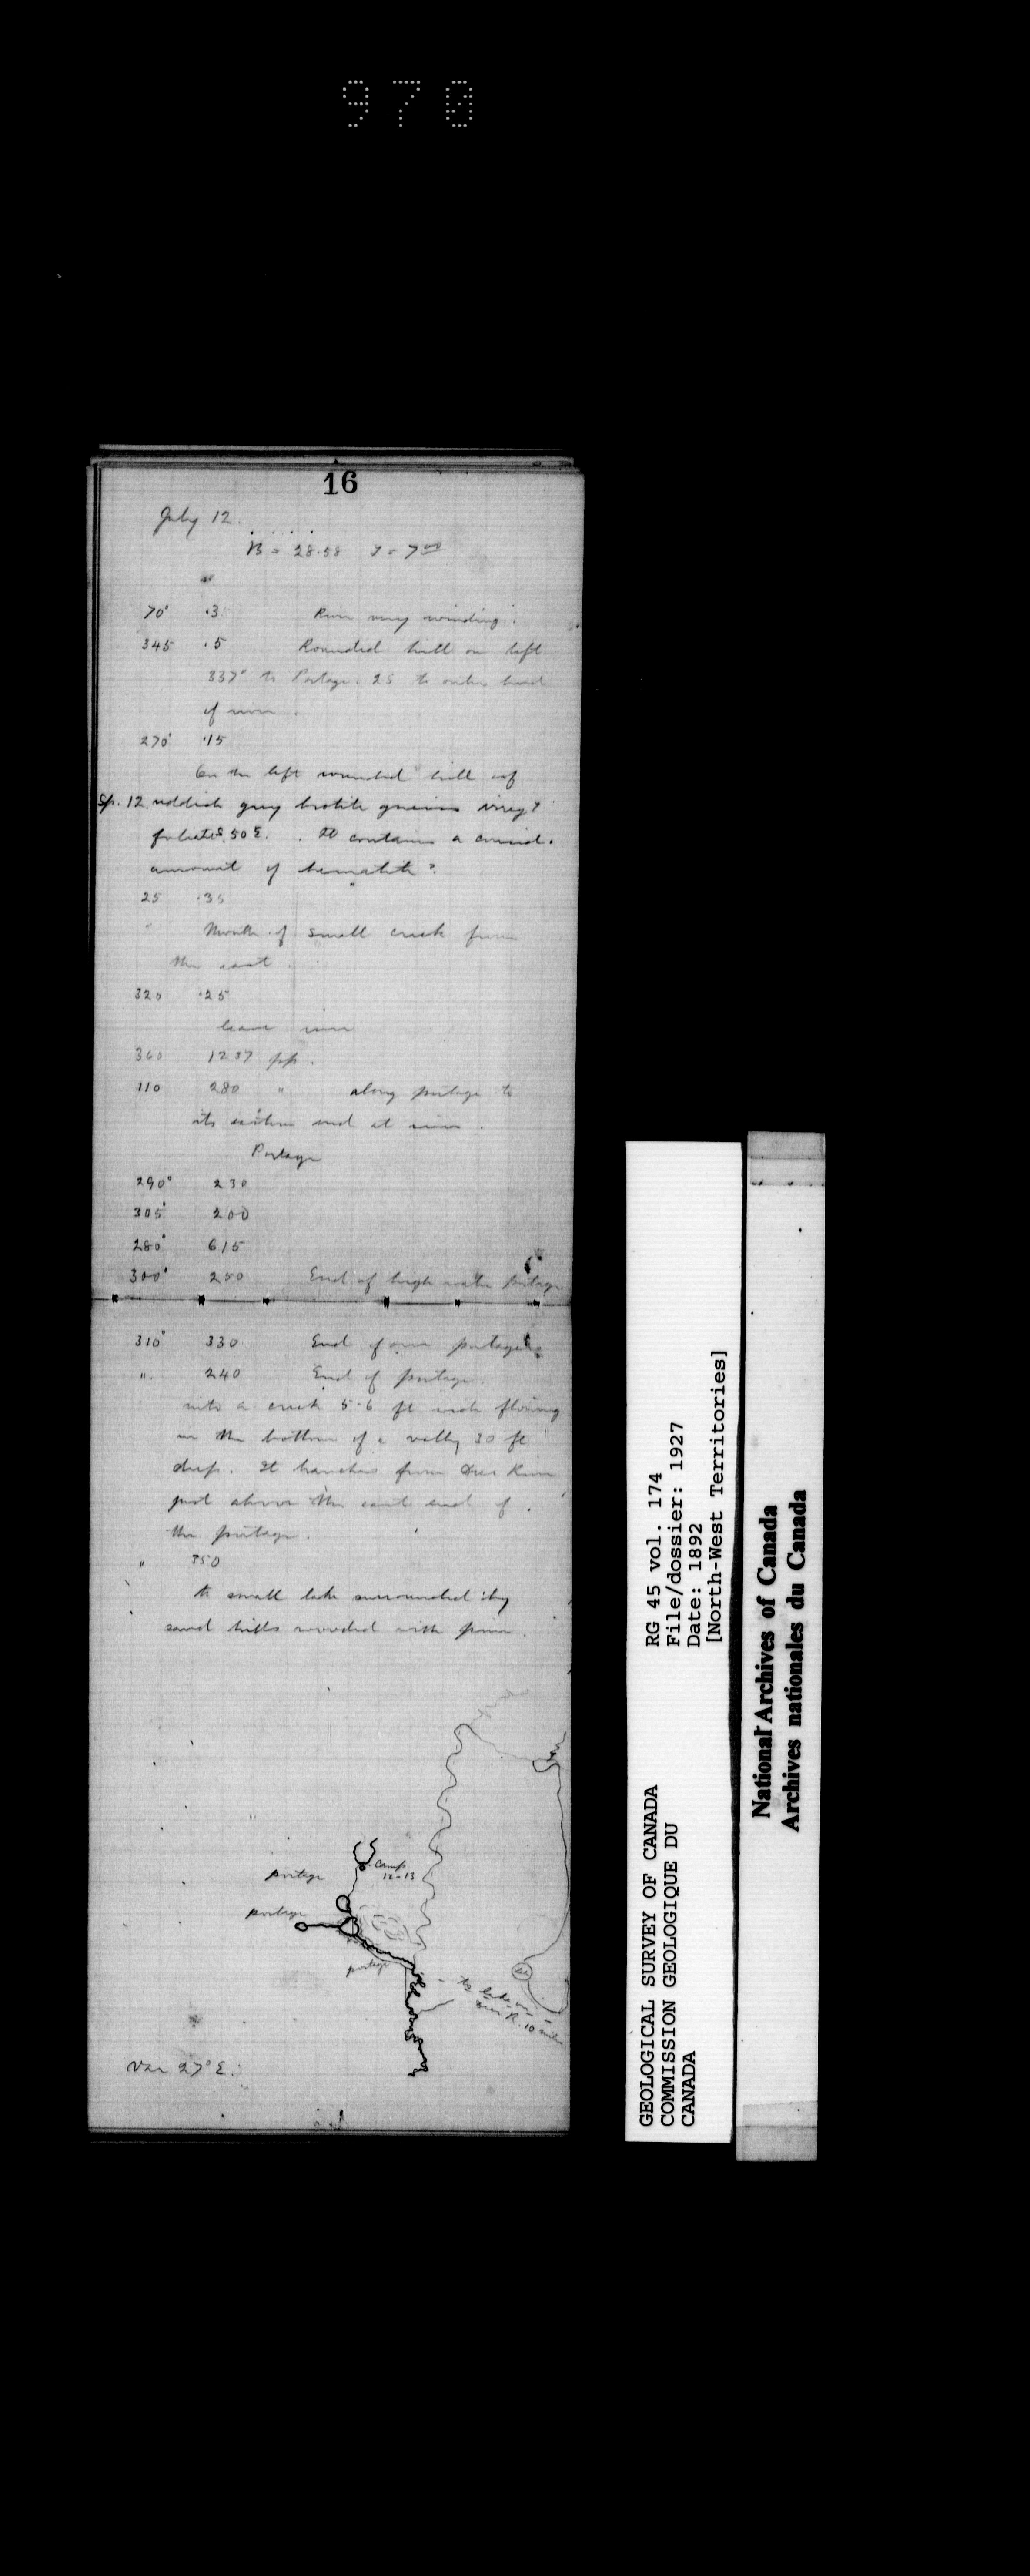 970
16
July 12.
B = 28.58 T = 7 00
70° .3 River very winding.
345 .5 Rounded hill on left
337° to Portage. 25 to outer bend
of river
270° .15
On the left rounded hill of
Sp. 12 reddish grey biotite gneiss irreg y
foliated S. 50 E. It contains a consid.
amount of hematite?
25 .35
Mouth of small creek from
the east
320 .25
leave river
360 1237 pp.
110 280 " along portage to
its eastern end at river.
Portage
290° 230
305° 200
280° 615
300° 250 End of high water portage
310° 330 End of our portage
". 240 End of portage
into a creek 5-6 ft wide flowing
in the bottom of a valley 30 ft
deep. It branches from Deer River
just above the east end of
the portage.
" 350
to small lake surrounded by
sand hills wooded with pine.
camp
12-13
portage
portage
portage
to lake on
Deer R. 10 miles
Var 27° E.
RG 45 vol. 174
File/dossier: 1927
Date: 1892
[North-West Territories]
GEOLOGICAL SURVEY OF CANADA
COMMISSION GEOLOGIQUE DU
CANADA
National Archives of Canada
Archives nationales du Canada